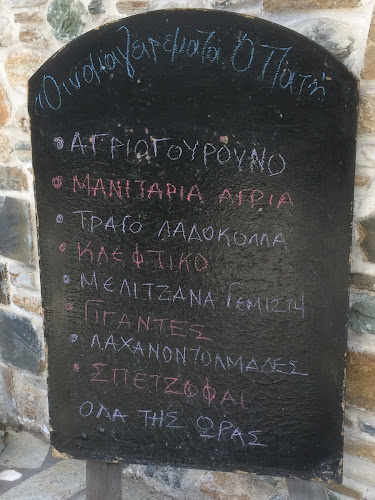 "Οινομαγειρέματα Ο Πλάτη"
• ΑΓΡΙΟΓΟΥΡΟΥΝΟ
• ΜΑΝΙΤΑΡΙΑ ΑΓΡΙΑ
• ΤΡΑΓΟ ΛΑΔΟΚΟΛΛΑ
• ΚΛΕΦΤΙΚΟ
• ΜΕΛΙΤΖΑΝΑ ΓΕΜΙΣΤΗ
• ΓΙΓΑΝΤΕΣ
• ΛΑΧΑΝΟΝΤΟΛΜΑΔΕΣ
• ΣΠΕΤΖΟΦΑΙ
ΟΛΑ ΤΗΣ ΩΡΑΣ